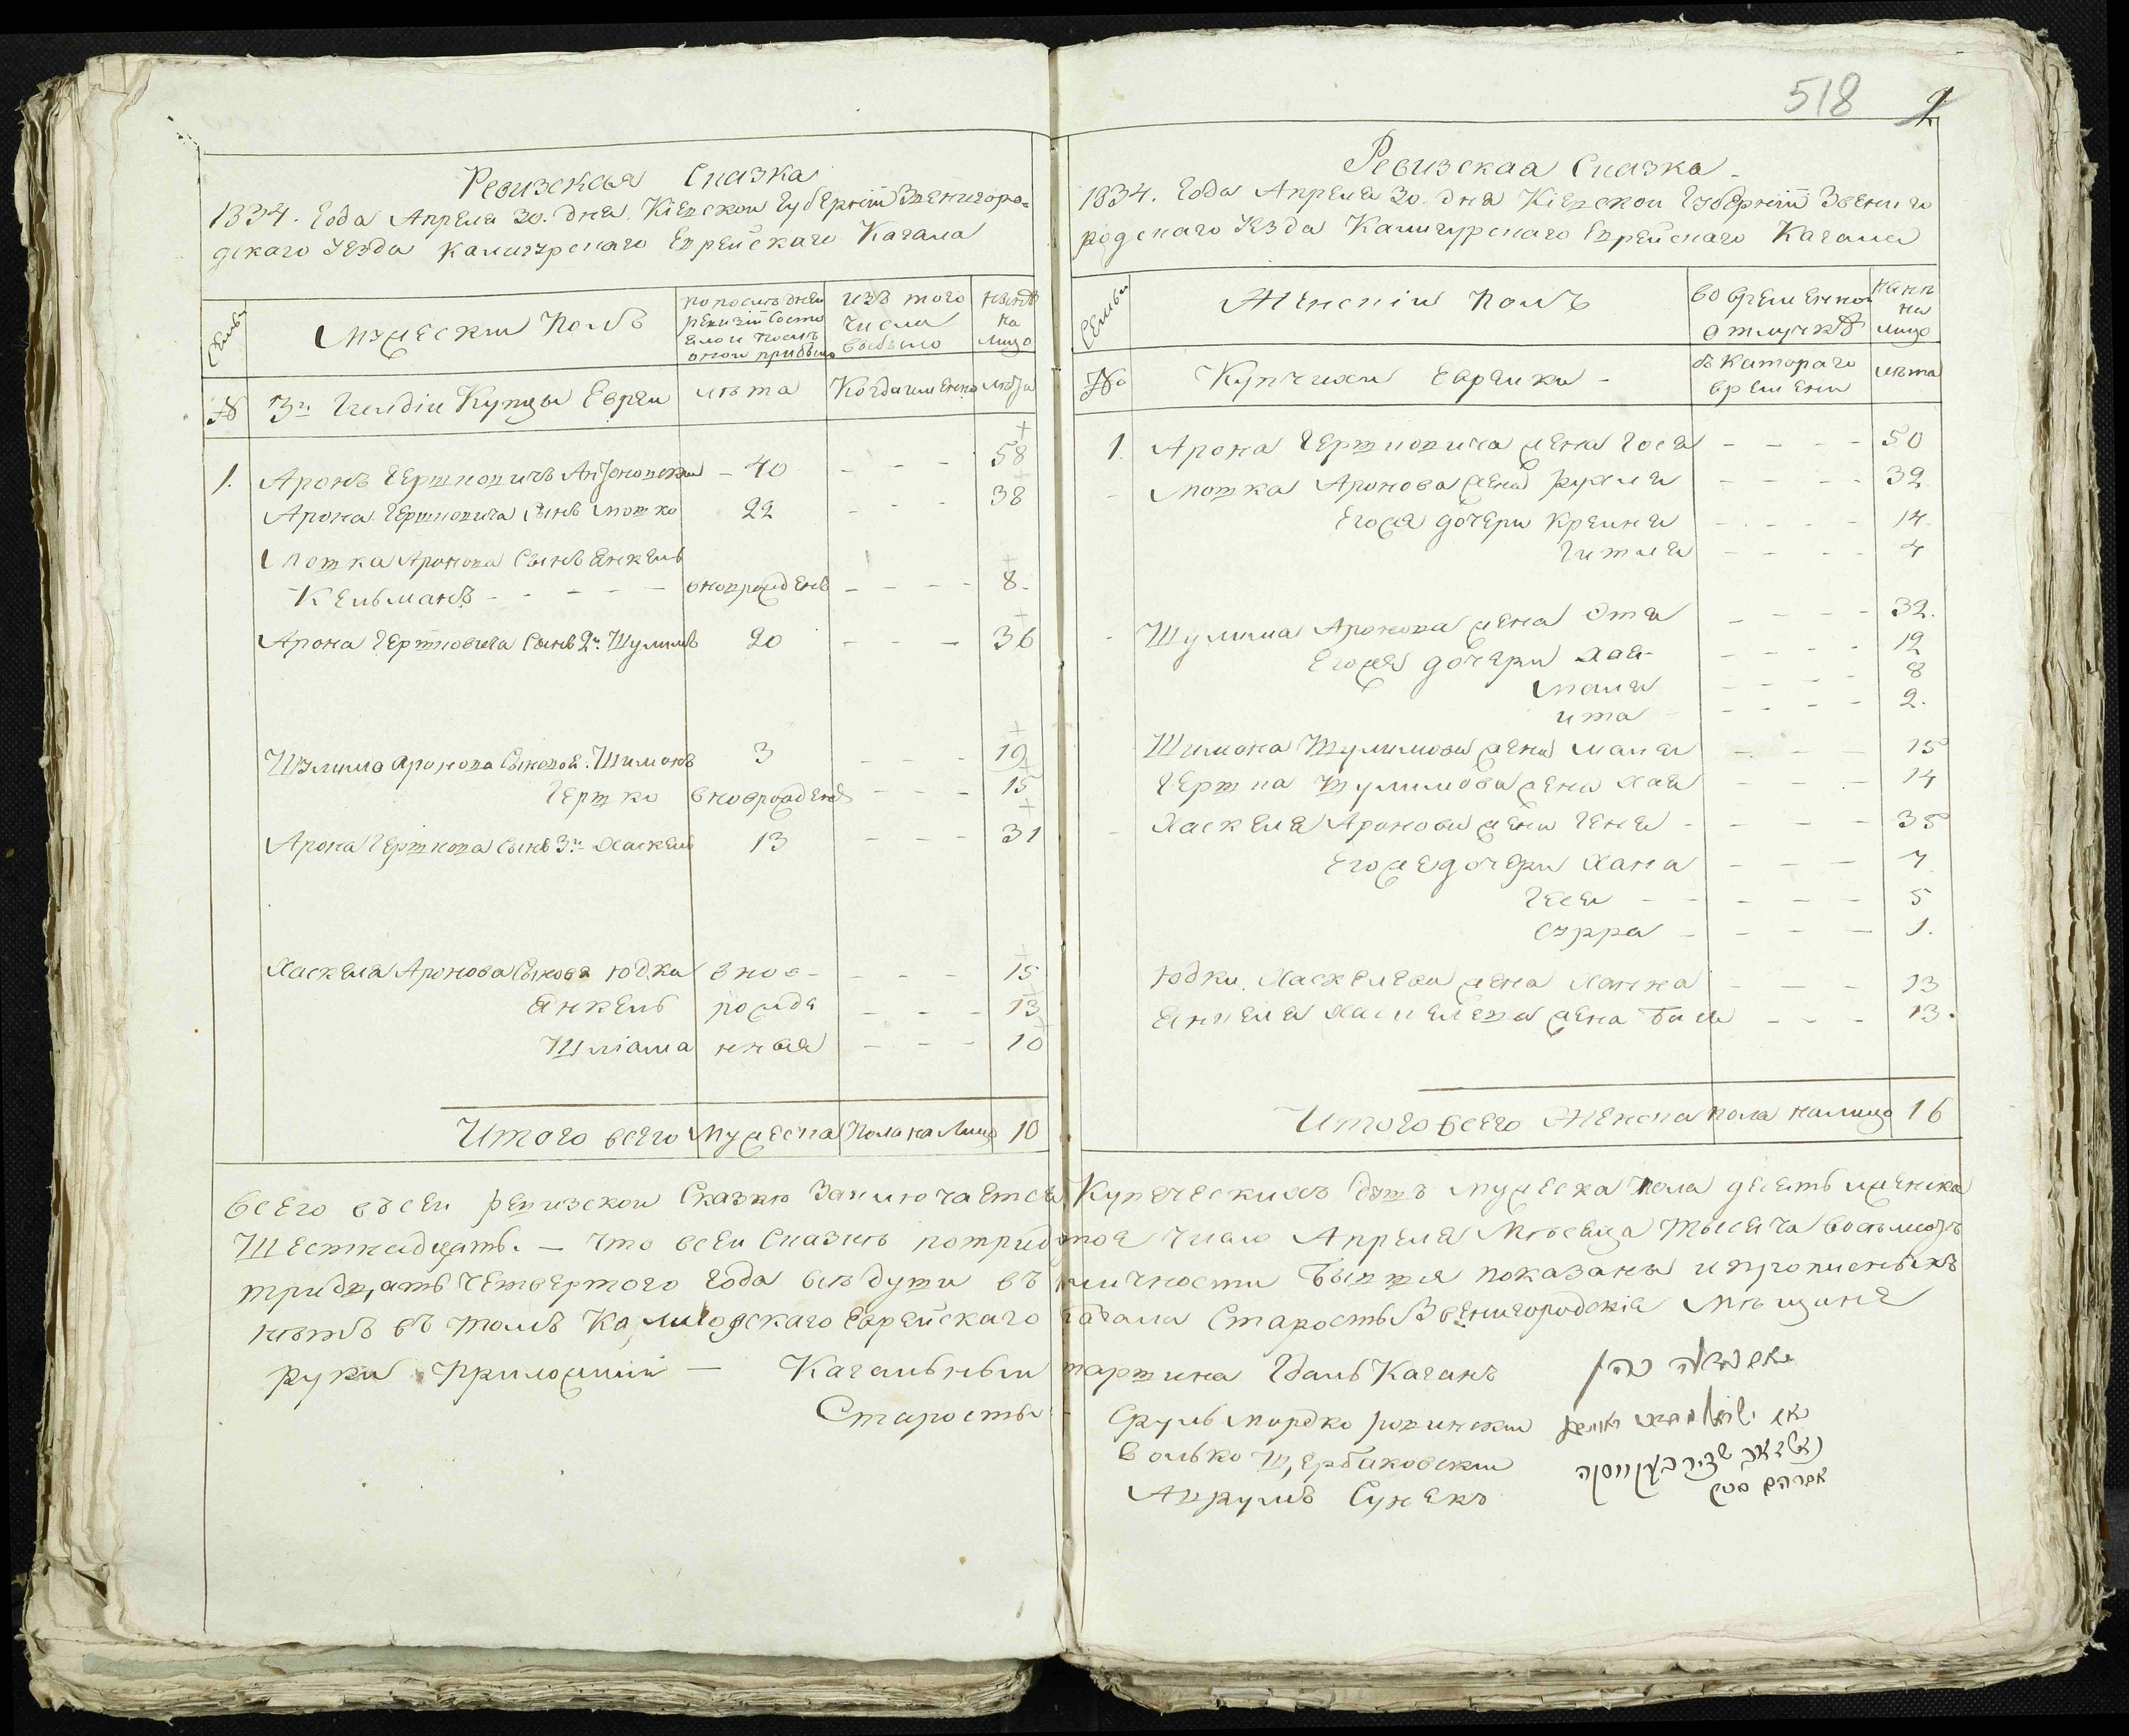 Ревизская Сказка
1834. Года Апреля 30. дня. Кіевской Губерніи Звенигоро-
дскаго Уезда Калигурскаго Еврейскаго Кагала
Семьи
Мужескій Полъ
по последней ревизіи состояло и после оной прибыло
изъ того числа выбыло
ныне на лицо
№
3й Гильдіи Купцы Евреи
лѣта
Когда именно
лѣта
1. Аронъ Гершковичъ - 40 - - - 58
Арона Гершковича Сынъ Мошко 22 - - - 38
Мошка Аронова Сынъ Янкель
Кельманъ - - - - - новорожденъ - - - - 8.
Арона Гершковича Сынъ 2й Шулимъ 20 - - - 36
Шулима Аронова Сыновя. Шимонъ 3 - - - 19
Гершко вноврожденъ - - - 15
Арона Гершкова Сынъ 3й Хаскель 13 - - - 31
Хаскеля Аронова Сыновя Юдка внов- - - - 15
Янкель рожде - - - 13
Шліома нныя - - - 10
Итого всего Мужеска Пола на Лицо 10
518
Ревизская Сказка
1834. Года Апреля 30. дня Кіевской Губерніи Звениго
родскаго Уѣзда Калигурскаго Еврейскаго Кагала
Семьи
Женскій Полъ
во временной отлучкѣ
ныне на лицо
№
Купчихи Еврейки -
съ катораго времени
лѣта
1. Арона Гершковича жена Гося - - - - 50
- Мошка Аронова жена Рухля - - - - 32
Егожа дочери Крейня - - - - 14
Гитля - - - - 4
- Шулима Аронова жена Этя - - - - 32.
Егожа дочери Хая - - - - 12
Маля - - - - 8
ита - - - - 2.
Шимона Шулимова жена Маля - - - 15
Гершка Шулимова жена Хая - - - 14
- Хаскеля Аронова жена Геня - - - - 35
Егоже дочери Хана - - - 7
Геся - - - - - 5
Сурра - - - - 1.
Юдки Хаскелева жена Ханна - - - 13
Янкеля Хаскелева жена - - - 13.
Итого всего Женска пола налицо 16
Всего в всей ревизской Сказки Заключается Купеческихъ душъ мужеска пола десять иженска
Шестнадцать. - Что всей Сказкѣ потридцатое число Апреля Мѣсяца Тысяча восьмосотъ
тридцать четвертого года всѣ души въ личности бывшія показаны и прописныхъ
нѣтъ въ томъ Еврейскаго Кагала Старосты Звенигородскіе Мѣщане
руки приложили - Кагальный Гдаль Каганъ
Старосты Сруль Мордко
Волько Щербаковскій
Аврумъ Сунекъ